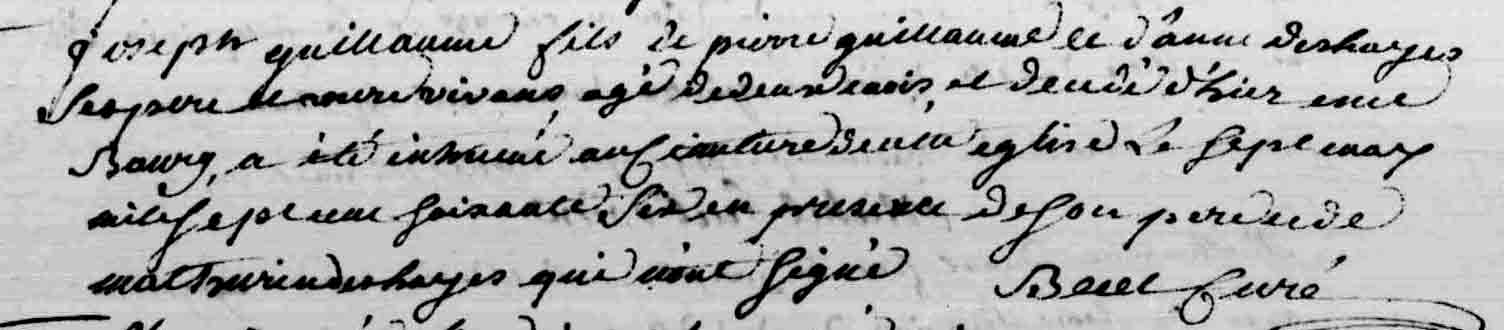 Joseph guillaume fils de pierre guillaume et d'anne deshayes
ses pere et mere vivans, agé de deux mois, et decedé d'hier en ce
Bourg, a été inhumé au Cimiture de cette eglise Le sept mars
mil sept cent soixante six en presence de son pere et de
mathurin deshayes qui n'ont signé Becel Curé